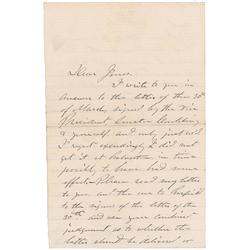 Dear Jones
I write to you in
answer to the letter of the 30th
of March, signed by the Vice
President Senator Conkling
& yourself and only just
I regret exceedingly I did not
get it at Galveston in time
possibly to have had some
effect. Please read my letter
to you and the one to
to the signers of the letter of the
30th and use your combined
judgement as to whether the
letter should be delivered or